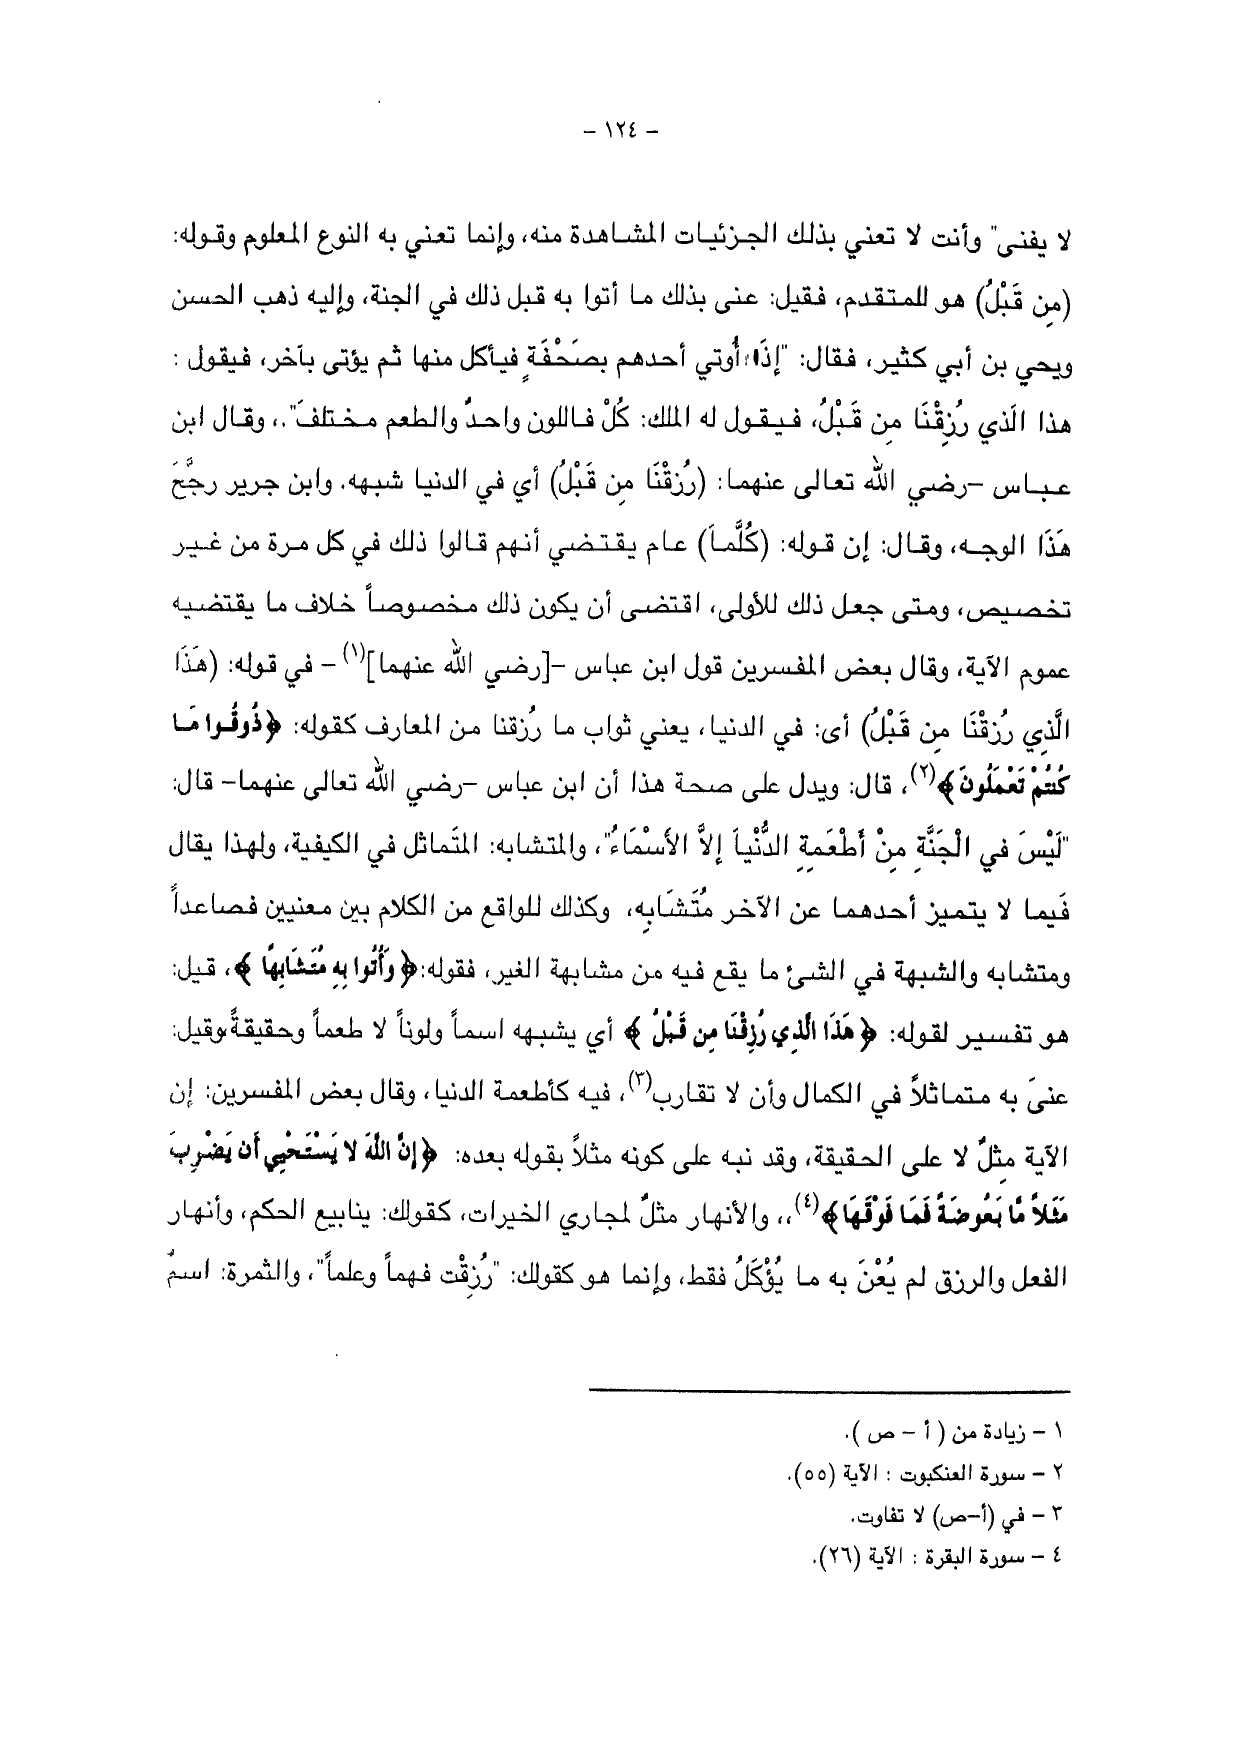 - ١٢٤ -
لا يفنى" وأنت لا تعني بذلك الجزئيات المشاهدة منه، وإنما تعني به النوع المعلوم وقوله:
(مِن قَبْلُ) هو للمتقدم، فقيل: عنى بذلك ما أتوا به قبل ذلك في الجنة، وإليه ذهب الحسن
ويحي بن أبي كثير، فقال: "إذَا أُوتي أحدهم بصَحْفَةٍ فيأكل منها ثم يؤتى بآخر، فيقول :
هذا الَذي رُزِقْنَا مِن قَبْلُ، فيقول له الملك: كُلْ فاللون واحدٌ والطعم مختلفَ".، وقال ابن
عباس -رضي الله تعالى عنهما: (رُزِقْنَا مِن قَبْلُ) أي في الدنيا شبهه. وابن جرير رجَّحَ
هَذَا الوجه، وقال: إن قوله: (كُلَّمَا) عام يقتضي أنهم قالوا ذلك في كل مرة من غير
تخصيص، ومتى جعل ذلك للأولى، اقتضى أن يكون ذلك مخصوصاً خلاف ما يقتضيه
عموم الآية، وقال بعض المفسرين قول ابن عباس -[رضي الله عنهما](١) - في قوله: (هَذَا
الَّذِي رُزِقْنَا مِن قَبْلُ) أى: في الدنيا، يعني ثواب ما رُزقنا من المعارف كقوله: ﴿ذُوقُوا مَا
كُنتُمْ تَعْمَلُونَ﴾(٢)، قال: ويدل على صحة هذا أن ابن عباس -رضي الله تعالى عنهما- قال:
"لَيْسَ فِي الْجَنَّةِ مِنْ أَطْعَمِةِ الدُّنْيَا إلاَّ الأَسْمَاءُ"، والمتشابه: المُتَماثل في الكيفية، ولهذا يقال
فَيما لا يتميز أحدهما عن الآخر مُتَشَابِه، وكذلك للواقع من الكلام بين معنيين فصاعداً
ومتشابه والشبهة في الشئ ما يقع فيه من مشابهة الغير، فقوله: ﴿وَأُتُوا بِهِ مُتَشَابِهًا ﴾، قيل:
هو تفسير لقوله: ﴿ هَذَا الَّذِي رُزِقْنَا مِن قَبْلُ ﴾ أي يشبهه اسماً ولوناً لا طعماً وحقيقةً وقيل:
عنىَ به متماثلاً في الكمال وأن لا تقارب(٣)، فيه كأطعمة الدنيا، وقال بعض المفسرين: إن
الآية مثلٌ لا على الحقيقة، وقد نبه على كونه مثلاً بقوله بعده: ﴿إِنَّ اللَّهَ لا يَسْتَحْيِي أَن يَضْرِبَ
مَثَلاً مَّا بَعُوضَةً فَمَا فَوْقَهَا﴾(٤)،، والأنهار مثلٌ لمجاري الخيرات، كقولك: ينابيع الحكم، وأنهار
الفعل والرزق لم يُعْنَ به ما يُؤْكَلُ فقط، وإنما هو كقولك: "رُزِقْت فهماً وعلماً"، والثمرة: اسمٌ
١ - زيادة من ( أ - ص ).
٢ - سورة العنكبوت : الآية (٥٥).
٣ - في (أ-ص) لا تفاوت.
٤ - سورة البقرة : الآية (٢٦).